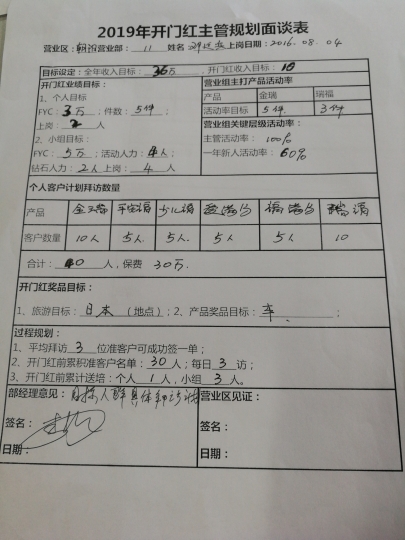 2019年开门红主管规划面谈表
营业区：朝 营业部： 11 姓名 上岗日期：2016.08.04
目标设定：全年收入目标：36万 ，开门红收入目标：10
开门红业绩目标：
1、个人目标
FYC：3万 ；件数：5件 ；
上岗：2 人
2、小组目标：
FYC：5万 ；活动人力：4人；
钻石人力：2人 上岗：4 人
营业组主打产品活动率
产品 金瑞 瑞福
活动率目标 5件 3件
营业组关键层级活动率：
主管活动率： 100%
一年新人活动率：60%
个人客户计划拜访数量
产品 金瑞 平安福 少儿福 满分 福满分
客户数量 10人 5人 5人 5人 5人 10
合计：40 人，保费 30万
开门红奖品目标：
1、旅游目标：日本 （地点）；2、产品奖品目标：车 ；
过程规划：
1、平均拜访 3 位准客户可成功签一单；
2、开门红前累积准客户名单：30 人；每日 3 访；
3、开门红前累计送培：个人 1 人，小组 3 人。
部经理意见：目标人群具体
签名：
日期：
营业区见证：
签名：
日期：